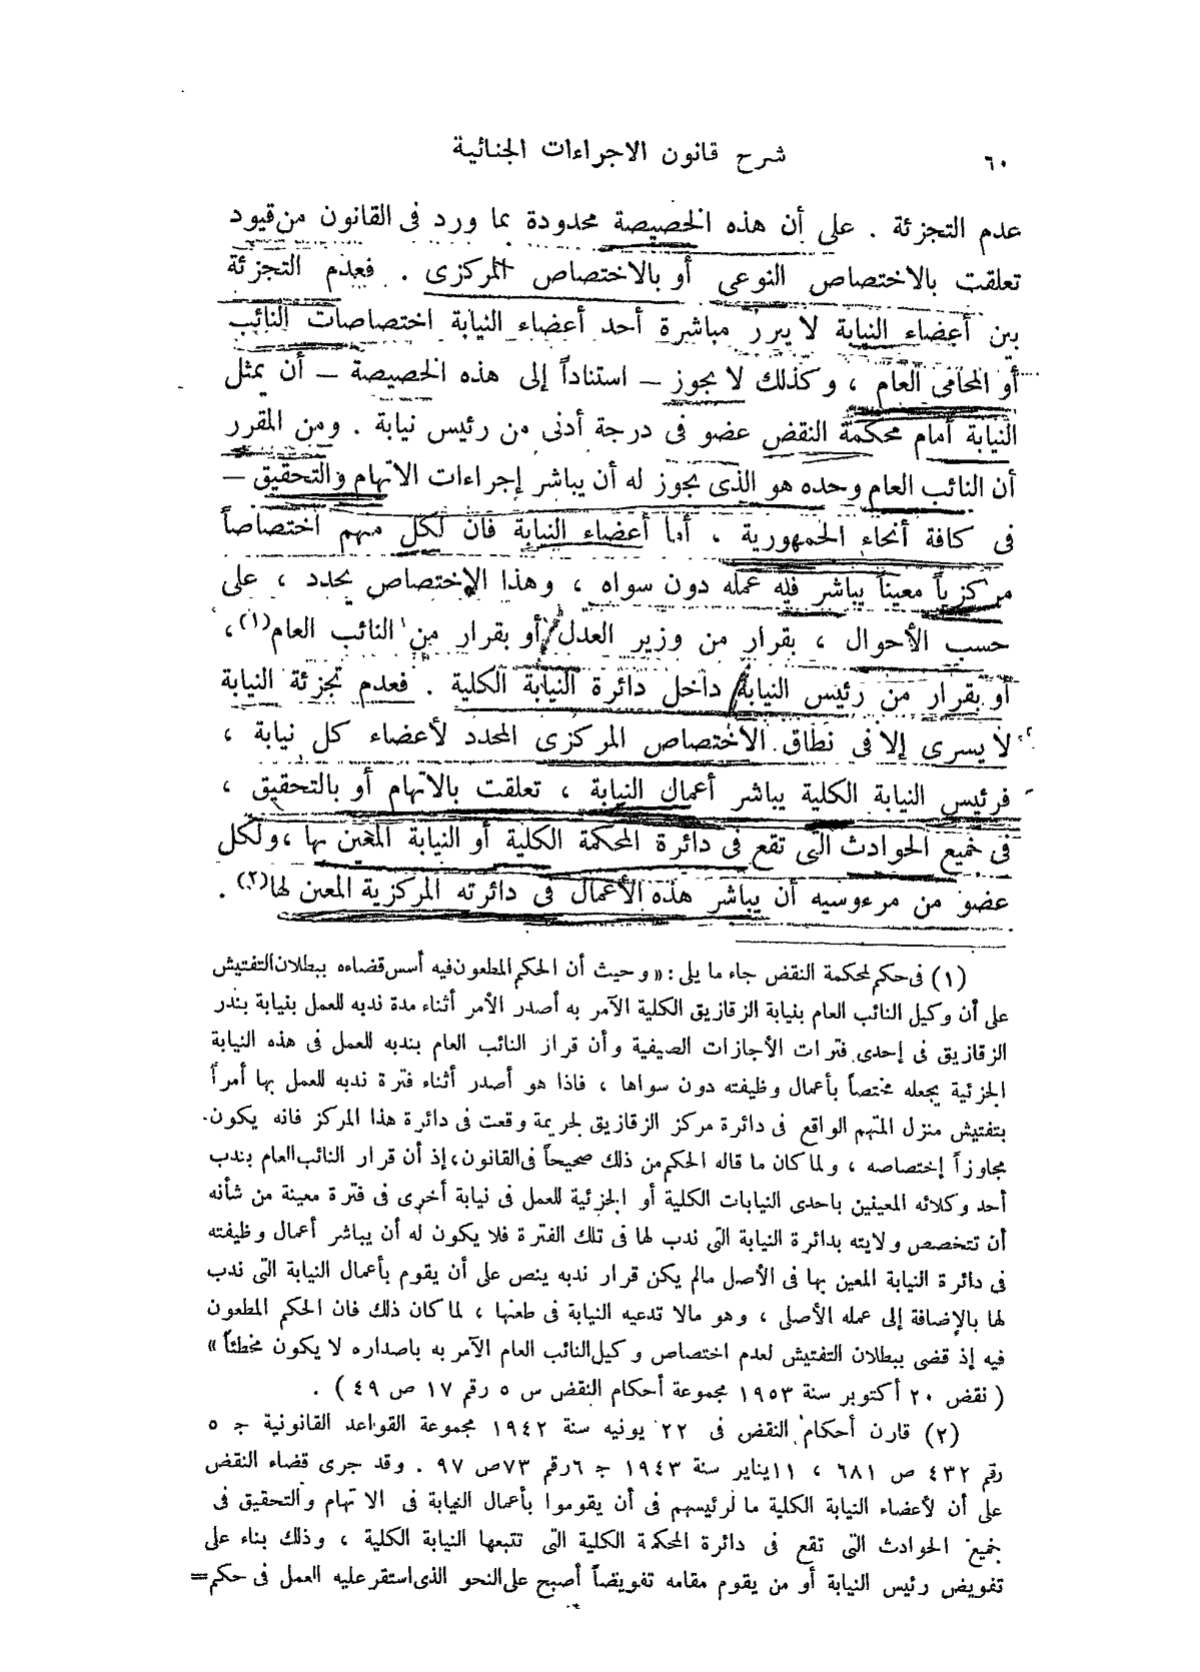 ٦٠
شرح قانون الاجراءات الجنائية
عدم التجزئة . على أن هذه الخصيصة محدودة بما ورد فى القانون من قيود
تعلقت بالاختصاص النوعى أو بالاختصاص المركزى . فعدم التجزئة
بين أعضاء النيابة لا يبرر مباشرة أحد أعضاء النيابة اختصاصات النائب
أو المحامى العام ، وكذلك لا يجوز – استناداً إلى هذه الخصيصة – أن يمثل
النيابة أمام محكمة النقض عضو فى درجة أدنى من رئيس نيابة . ومن المقرر
أن النائب العام وحده هو الذى يجوز له أن يباشر إجراءات الاتهام والتحقيق –
فى كافة أنحاء الجمهورية ، أما أعضاء النيابة فان لكل منهم اختصاصاً
مركزياً معيناً يباشر فيه عمله دون سواه ، وهذا الاختصاص يحدد ، على
حسب الأحوال ، بقرار من وزير العدل أو بقرار من النائب العام(١) ،
أو بقرار من رئيس النيابة داخل دائرة النيابة الكلية . فعدم تجزئة النيابة
لا يسرى إلا فى نطاق الاختصاص المركزى المحدد لأعضاء كل نيابة ،
فرئيس النيابة الكلية يباشر أعمال النيابة ، تعلقت بالاتهام أو بالتحقيق ،
فى جميع الحوادث التى تقع فى دائرة المحكمة الكلية أو النيابة المعين بها ، ولكل
عضو من مرءوسيه أن يباشر هذه الأعمال فى دائرته المركزية المعين لها(٢) .
(١) فى حكم لمحكمة النقض جاء ما يلى : « وحيث أن الحكم المطعون فيه أسس قضاءه ببطلان التفتيش
على أن وكيل النائب العام بنيابة الزقازيق الكلية الآمر به أصدر الأمر أثناء مدة ندبه للعمل بنيابة بندر
الزقازيق فى إحدى فترات الأجازات الصيفية وأن قرار النائب العام بندبه للعمل فى هذه النيابة
الجزئية يجعله مختصاً بأعمال وظيفته دون سواها ، فاذا هو أصدر أثناء فترة ندبه للعمل بها أمراً
بتفتيش منزل المتهم الواقع فى دائرة مركز الزقازيق لجريمة وقعت فى دائرة هذا المركز فانه يكون
مجاوزاً إختصاصه ، ولما كان ما قاله الحكم من ذلك صحيحاً فى القانون ، إذ أن قرار النائب العام بندب
أحد وكلائه المعينين باحدى النيابات الكلية أو الجزئية للعمل فى نيابة أخرى فى فترة معينة من شأنه
أن تتخصص ولايته بدائرة النيابة التى ندب لها فى تلك الفترة فلا يكون له أن يباشر أعمال وظيفته
فى دائرة النيابة المعين بها فى الأصل مالم يكن قرار ندبه ينص على أن يقوم بأعمال النيابة التى ندب
لها بالإضافة إلى عمله الأصلى ، وهو مالا تدعيه النيابة فى طعنها ، لما كان ذلك فان الحكم المطعون
فيه إذ قضى ببطلان التفتيش لعدم اختصاص وكيل النائب العام الآمر به باصداره لا يكون مخطئاً »
( نقض ٢٠ أكتوبر سنة ١٩٥٣ مجموعة أحكام النقض س ٥ رقم ١٧ ص ٤٩ ) .
(٢) قارن أحكام النقض فى ٢٢ يونيه سنة ١٩٤٢ مجموعة القواعد القانونية ج ٥
رقم ٤٣٢ ص ٦٨١ ، ١١ يناير سنة ١٩٤٣ ج ٦ رقم ٧٣ ص ٩٧ . وقد جرى قضاء النقض
على أن لأعضاء النيابة الكلية ما لرئيسهم فى أن يقوموا بأعمال النيابة فى الاتهام والتحقيق فى
جميع الحوادث التى تقع فى دائرة المحكمة الكلية التى تتبعها النيابة الكلية ، وذلك بناء على
تفويض رئيس النيابة أو من يقوم مقامه تفويضاً أصبح على النحو الذى استقر عليه العمل فى حكم=